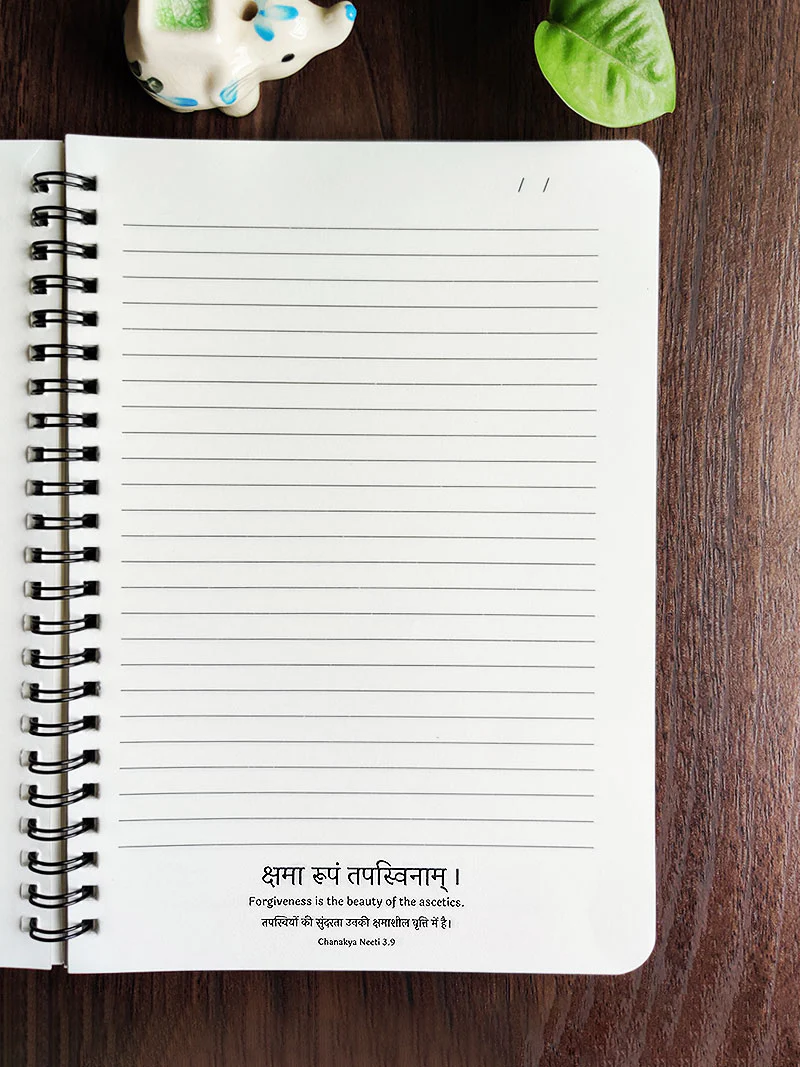 / /
क्षमा रूपं तपस्विनाम् ।
Forgiveness is the beauty of the ascetics.
तपस्वियों की सुंदरता उनकी क्षमाशील वृत्ति में है।
Chanakya Neeti 3.9